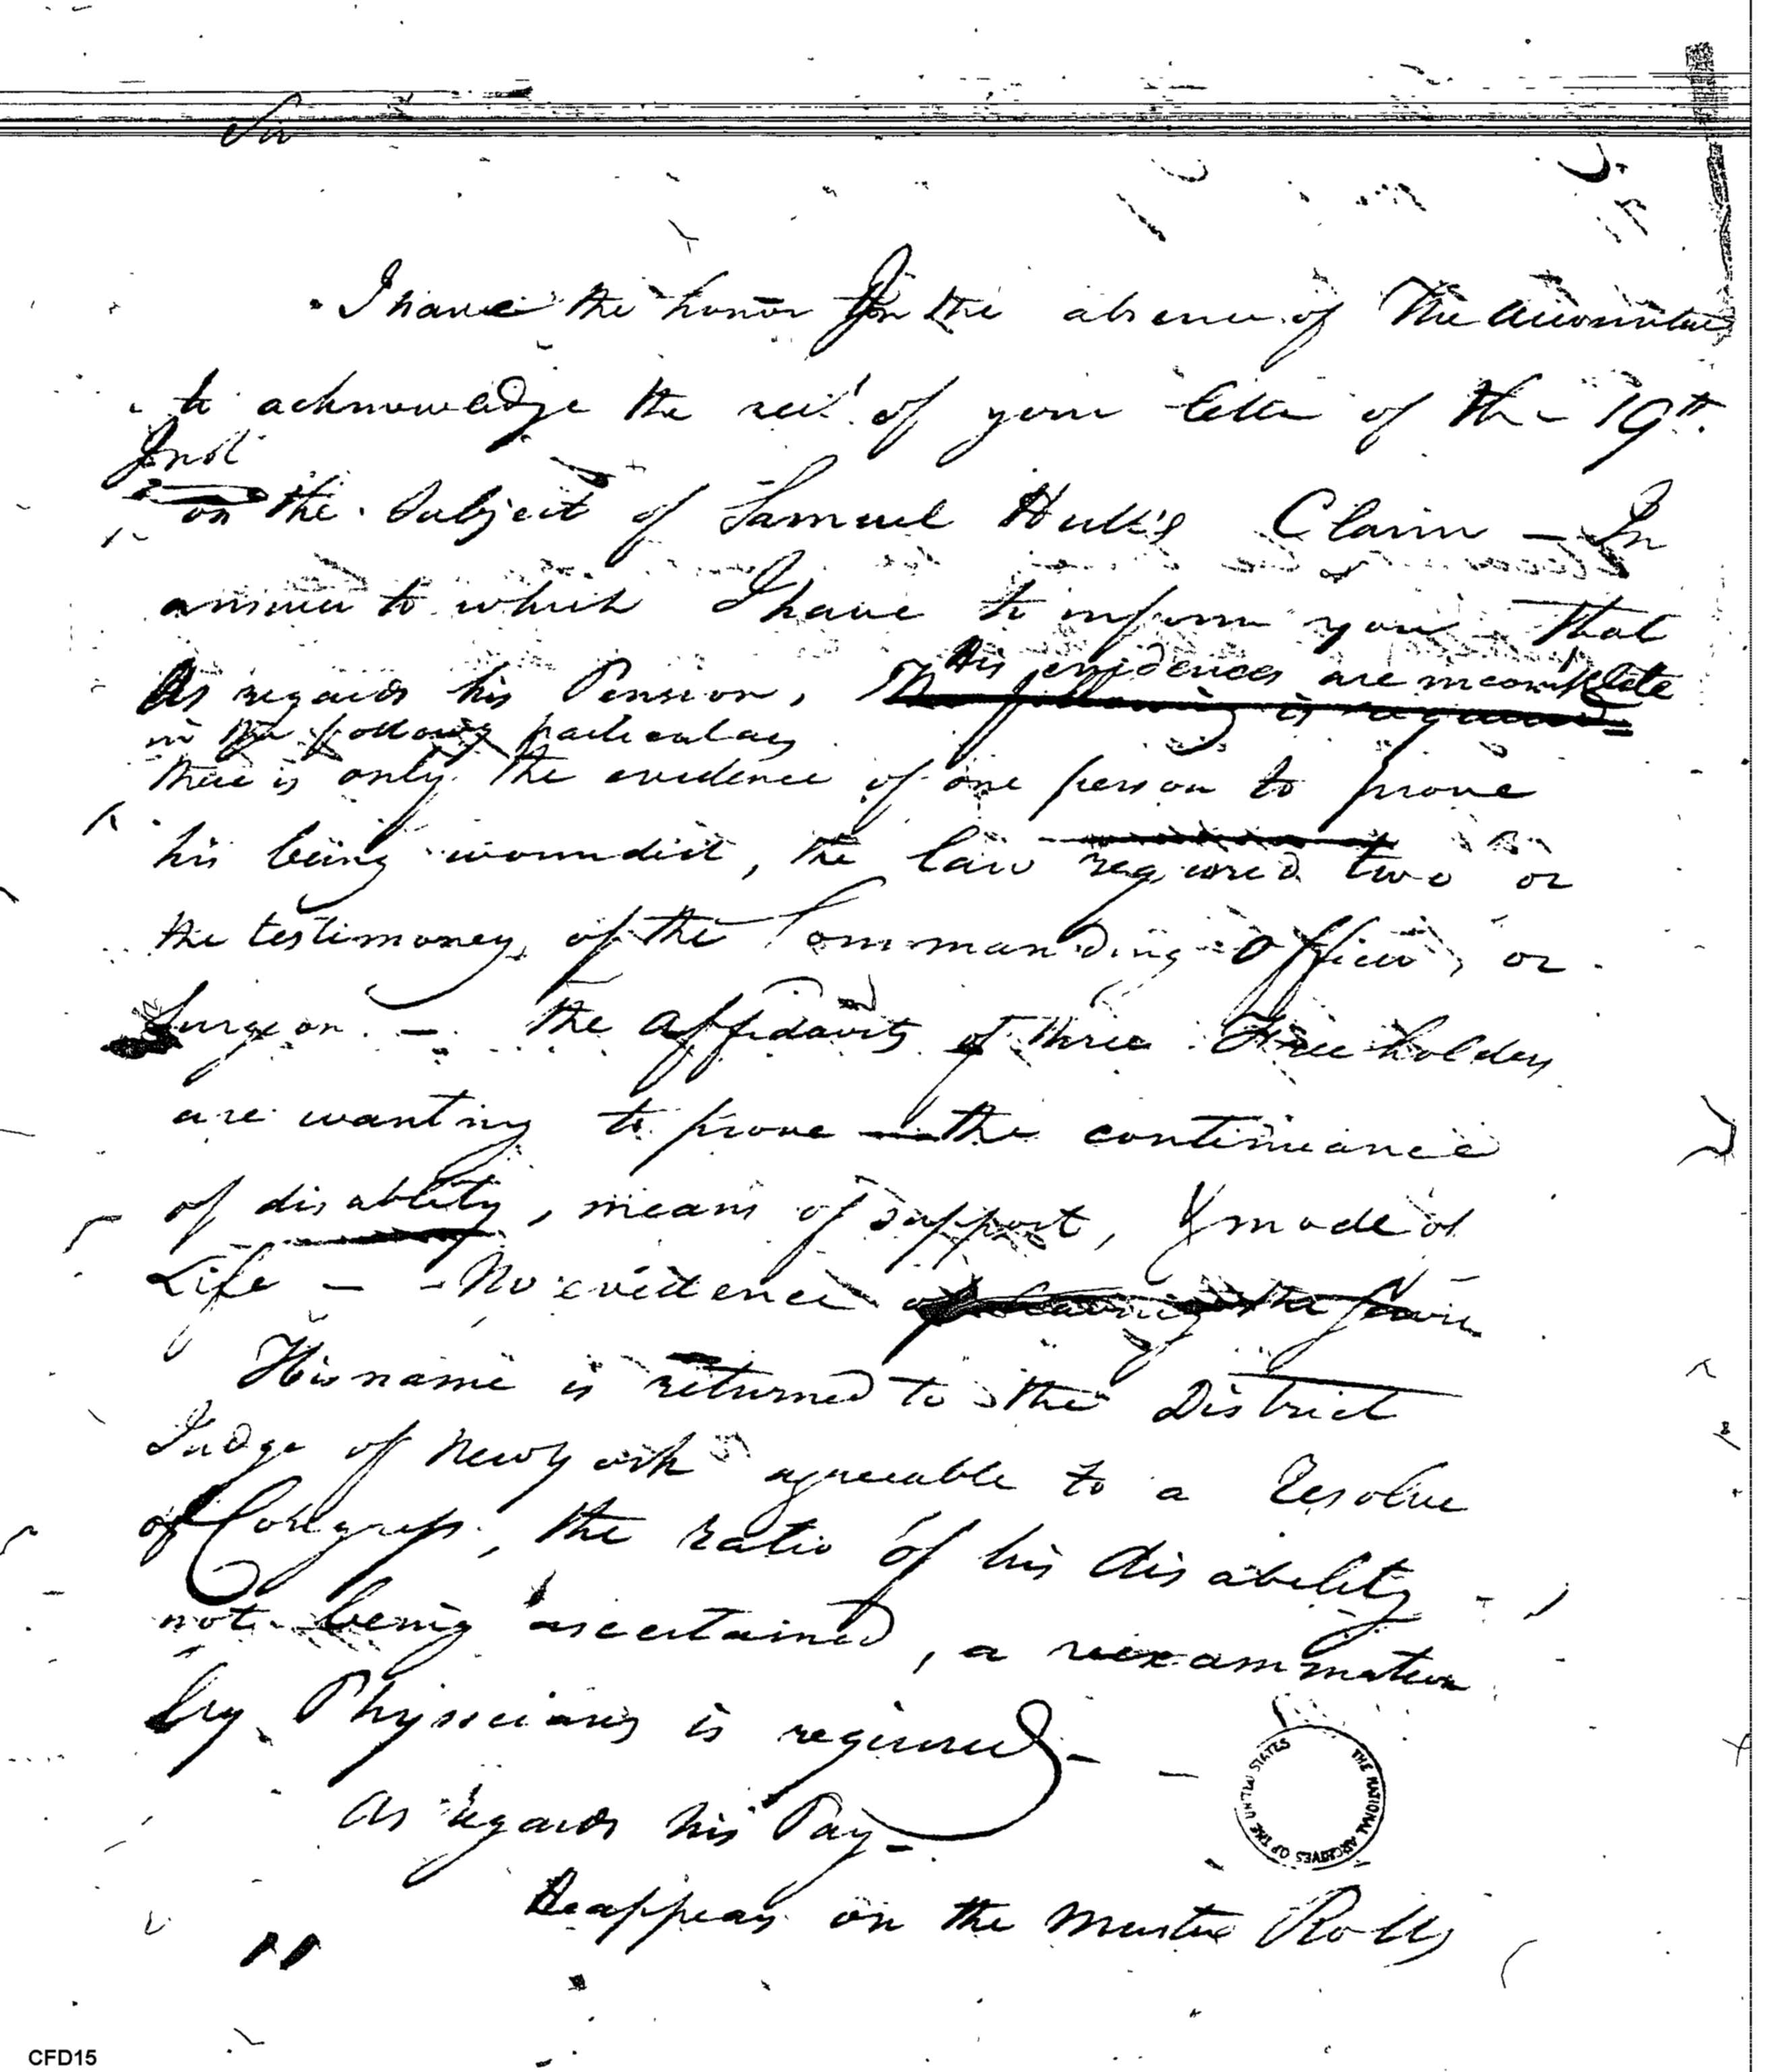 Sir
I have the honor In the absence of The Accountant
to acknowledge the rect. of your letter of the 19th.
Inst
on the Subject of Samuel Hull's Claim — In
answer to which I have to inform you That
his evidences are incomplete
As regards his Pension, The following is required
in the following particulars
there is only the evidence of one person to prove
his being wounded, the law required two or
the testimoney of the Commanding Officer, or
Surgeon. — the Affidavits of three Freeholders
are wanting to prove the continuance
of disablity, means of support, & mode of
Life — - No evidence of leaving the Service
His name is returned to the District
Judge of New York agreeable to a Resolve
of Congress, the ratio of his disability
not being ascertained, a reexamination
by Physicians is required — —
As regards his Pay —
He appears on the Muster Rolls
THE NATIONAL ARCHIVES OF THE UNITED STATES
CFD15